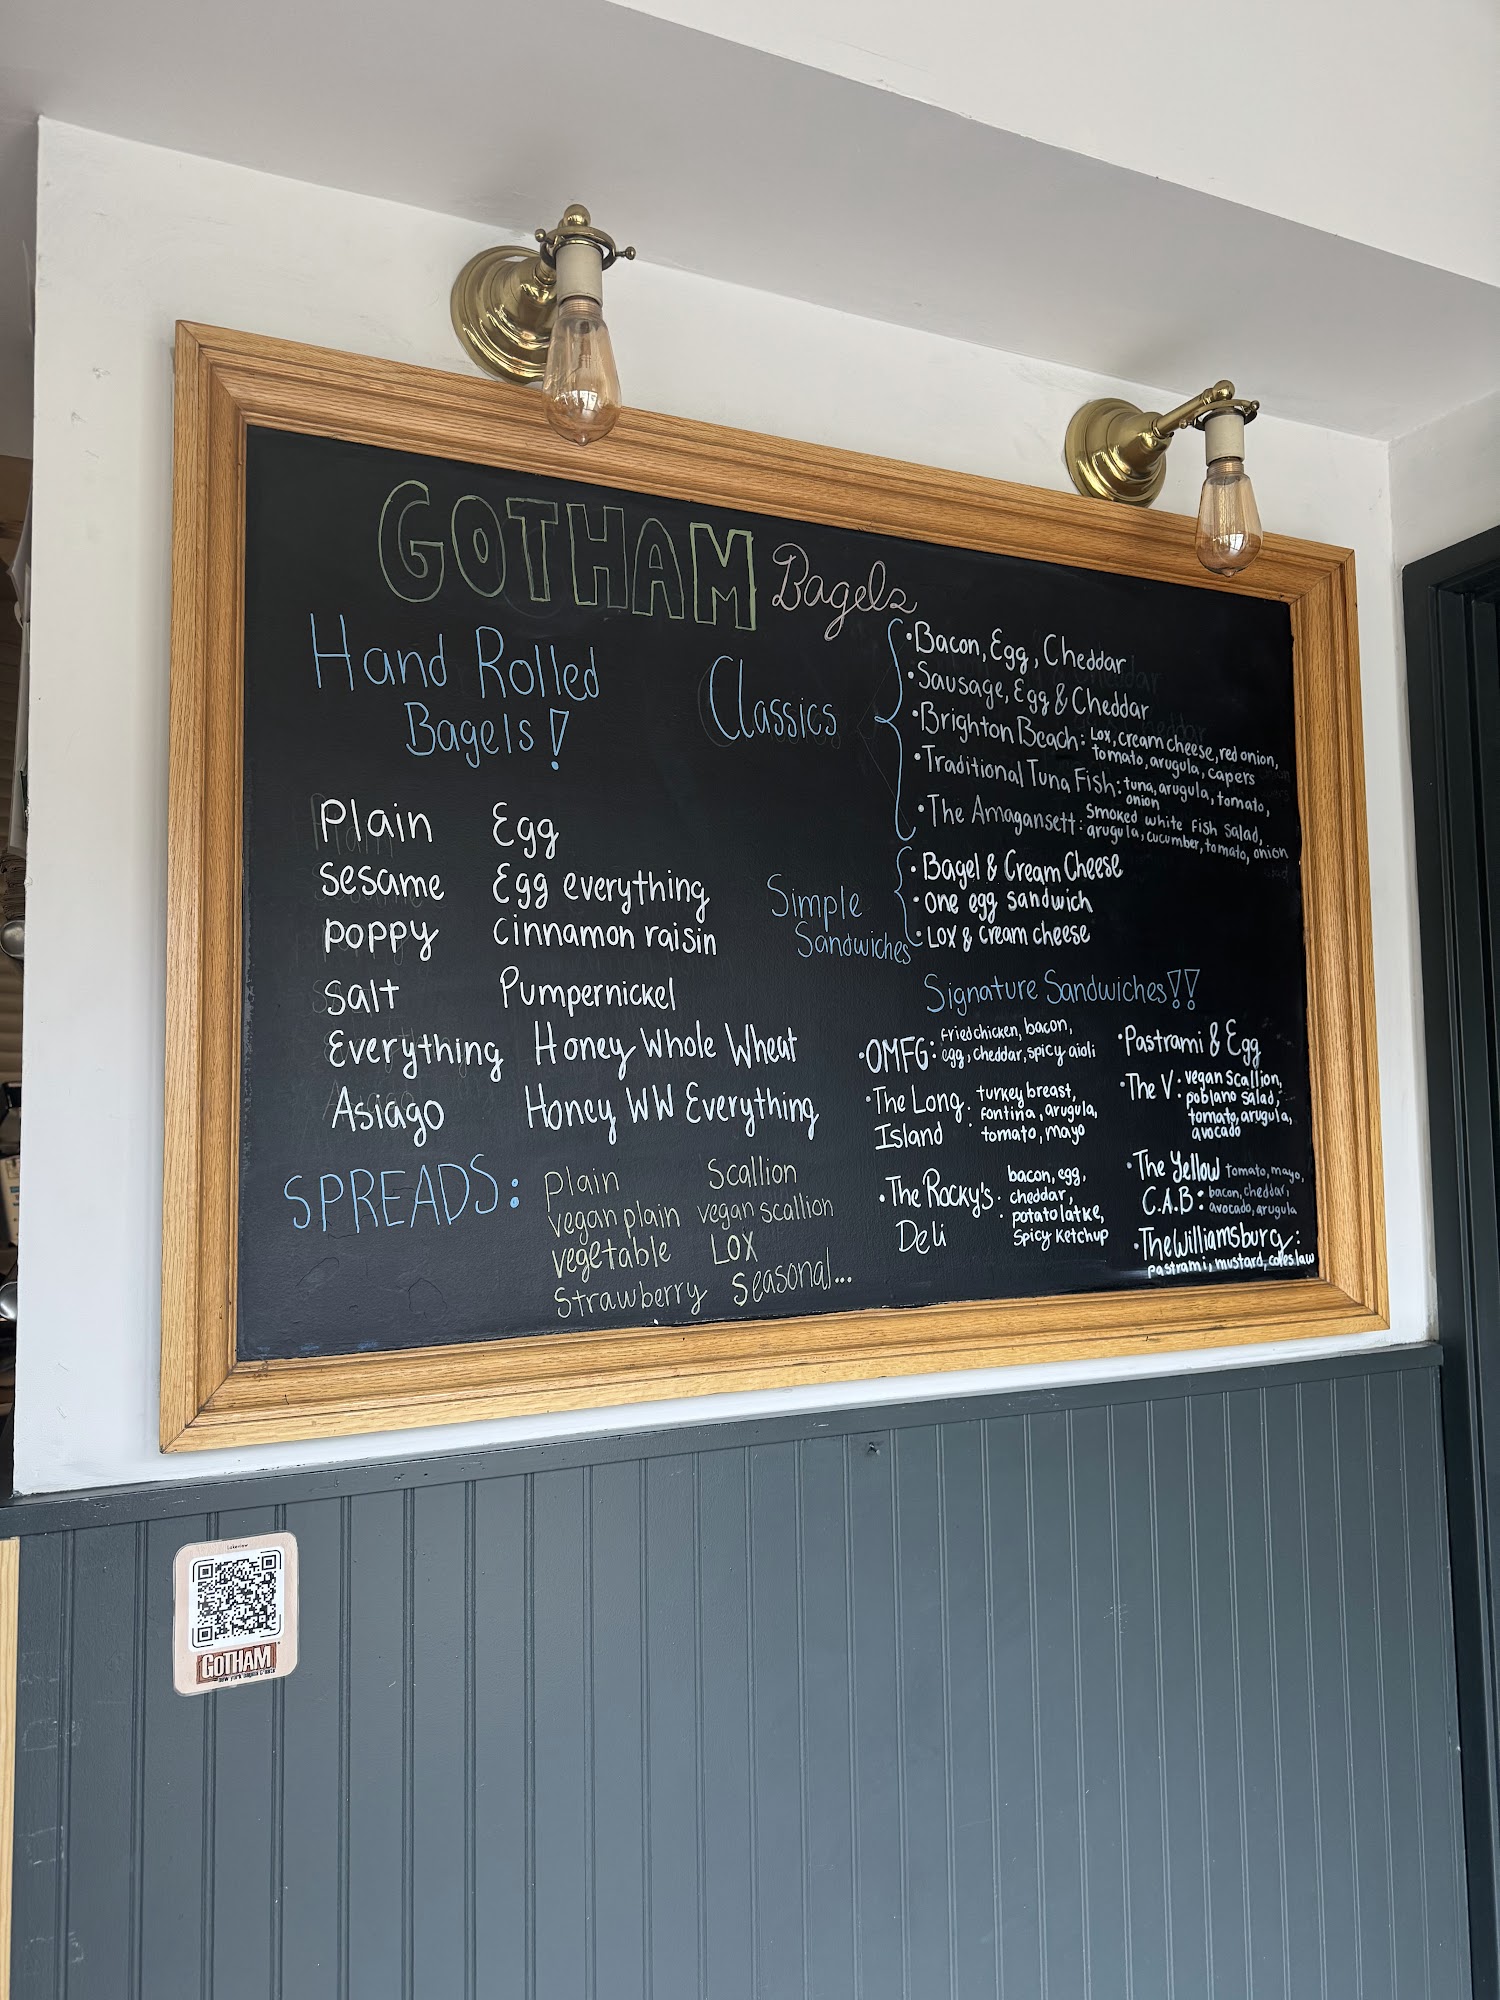 GOTHAM Bagels
Hand Rolled
Bagels!
Plain
Sesame
poppy
Salt
Everything
Asiago
Egg
Egg everything
Cinnamon raisin
Pumpernickel
Honey Whole Wheat
Honey WW Everything
SPREADS:
Plain
vegan plain
vegetable
Strawberry
Scallion
vegan scallion
LOX
Seasonal...
Classics
•Bacon, Egg, Cheddar
•Sausage, Egg & Cheddar
•Brighton Beach: Lox, cream cheese, red onion,
tomato, arugula, capers
•Traditional Tuna Fish: tuna, arugula, tomato,
onion
•The Amagansett: Smoked white fish salad,
arugula, cucumber, tomato, onion
Simple
Sandwiches
•Bagel & Cream Cheese
•One egg sandwich
•Lox & cream cheese
Signature Sandwiches!!
•OMFG: fried chicken, bacon,
egg, cheddar, spicy aioli
•The Long Island: turkey breast,
fontina, arugula,
tomato, mayo
•The Rocky's Deli: bacon, egg,
cheddar,
potato latke,
Spicy ketchup
•Pastrami & Egg
•The V: vegan scallion,
poblano salad,
tomato, arugula,
avocado
•The Yellow C.A.B: tomato, mayo,
bacon, cheddar,
avocado, arugula
•The Williamsburg:
pastrami, mustard, coleslaw
Lakeview
GOTHAM